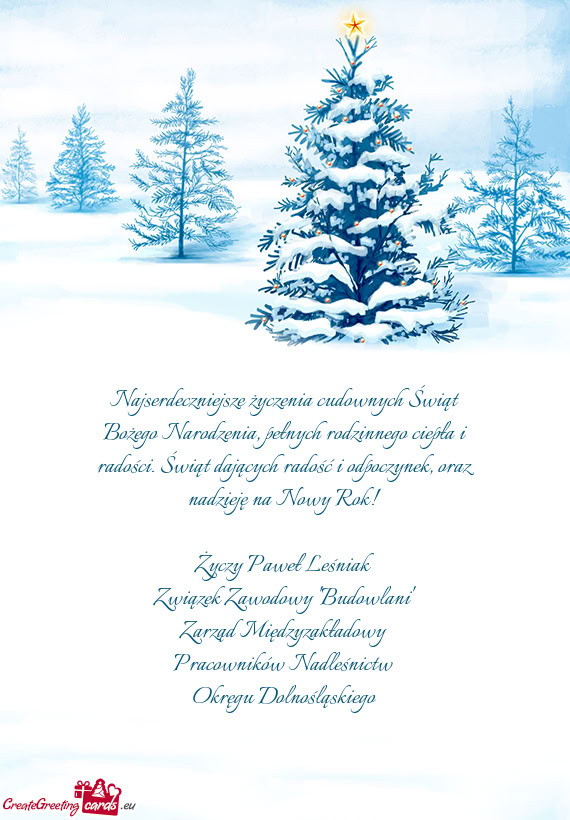 Najserdeczniejszę życzenia cudownych Świąt
Bożego Narodzenia, pełnych rodzinnego ciepła i
radości. Świąt dających radość i odpoczynek, oraz
nadzieję na Nowy Rok!
Życzy Paweł Leśniak
Związek Zawodowy "Budowlani"
Zarząd Międzyzakładowy
Pracowników Nadleśnictw
Okręgu Dolnośląskiego
CreateGreeting cards .eu